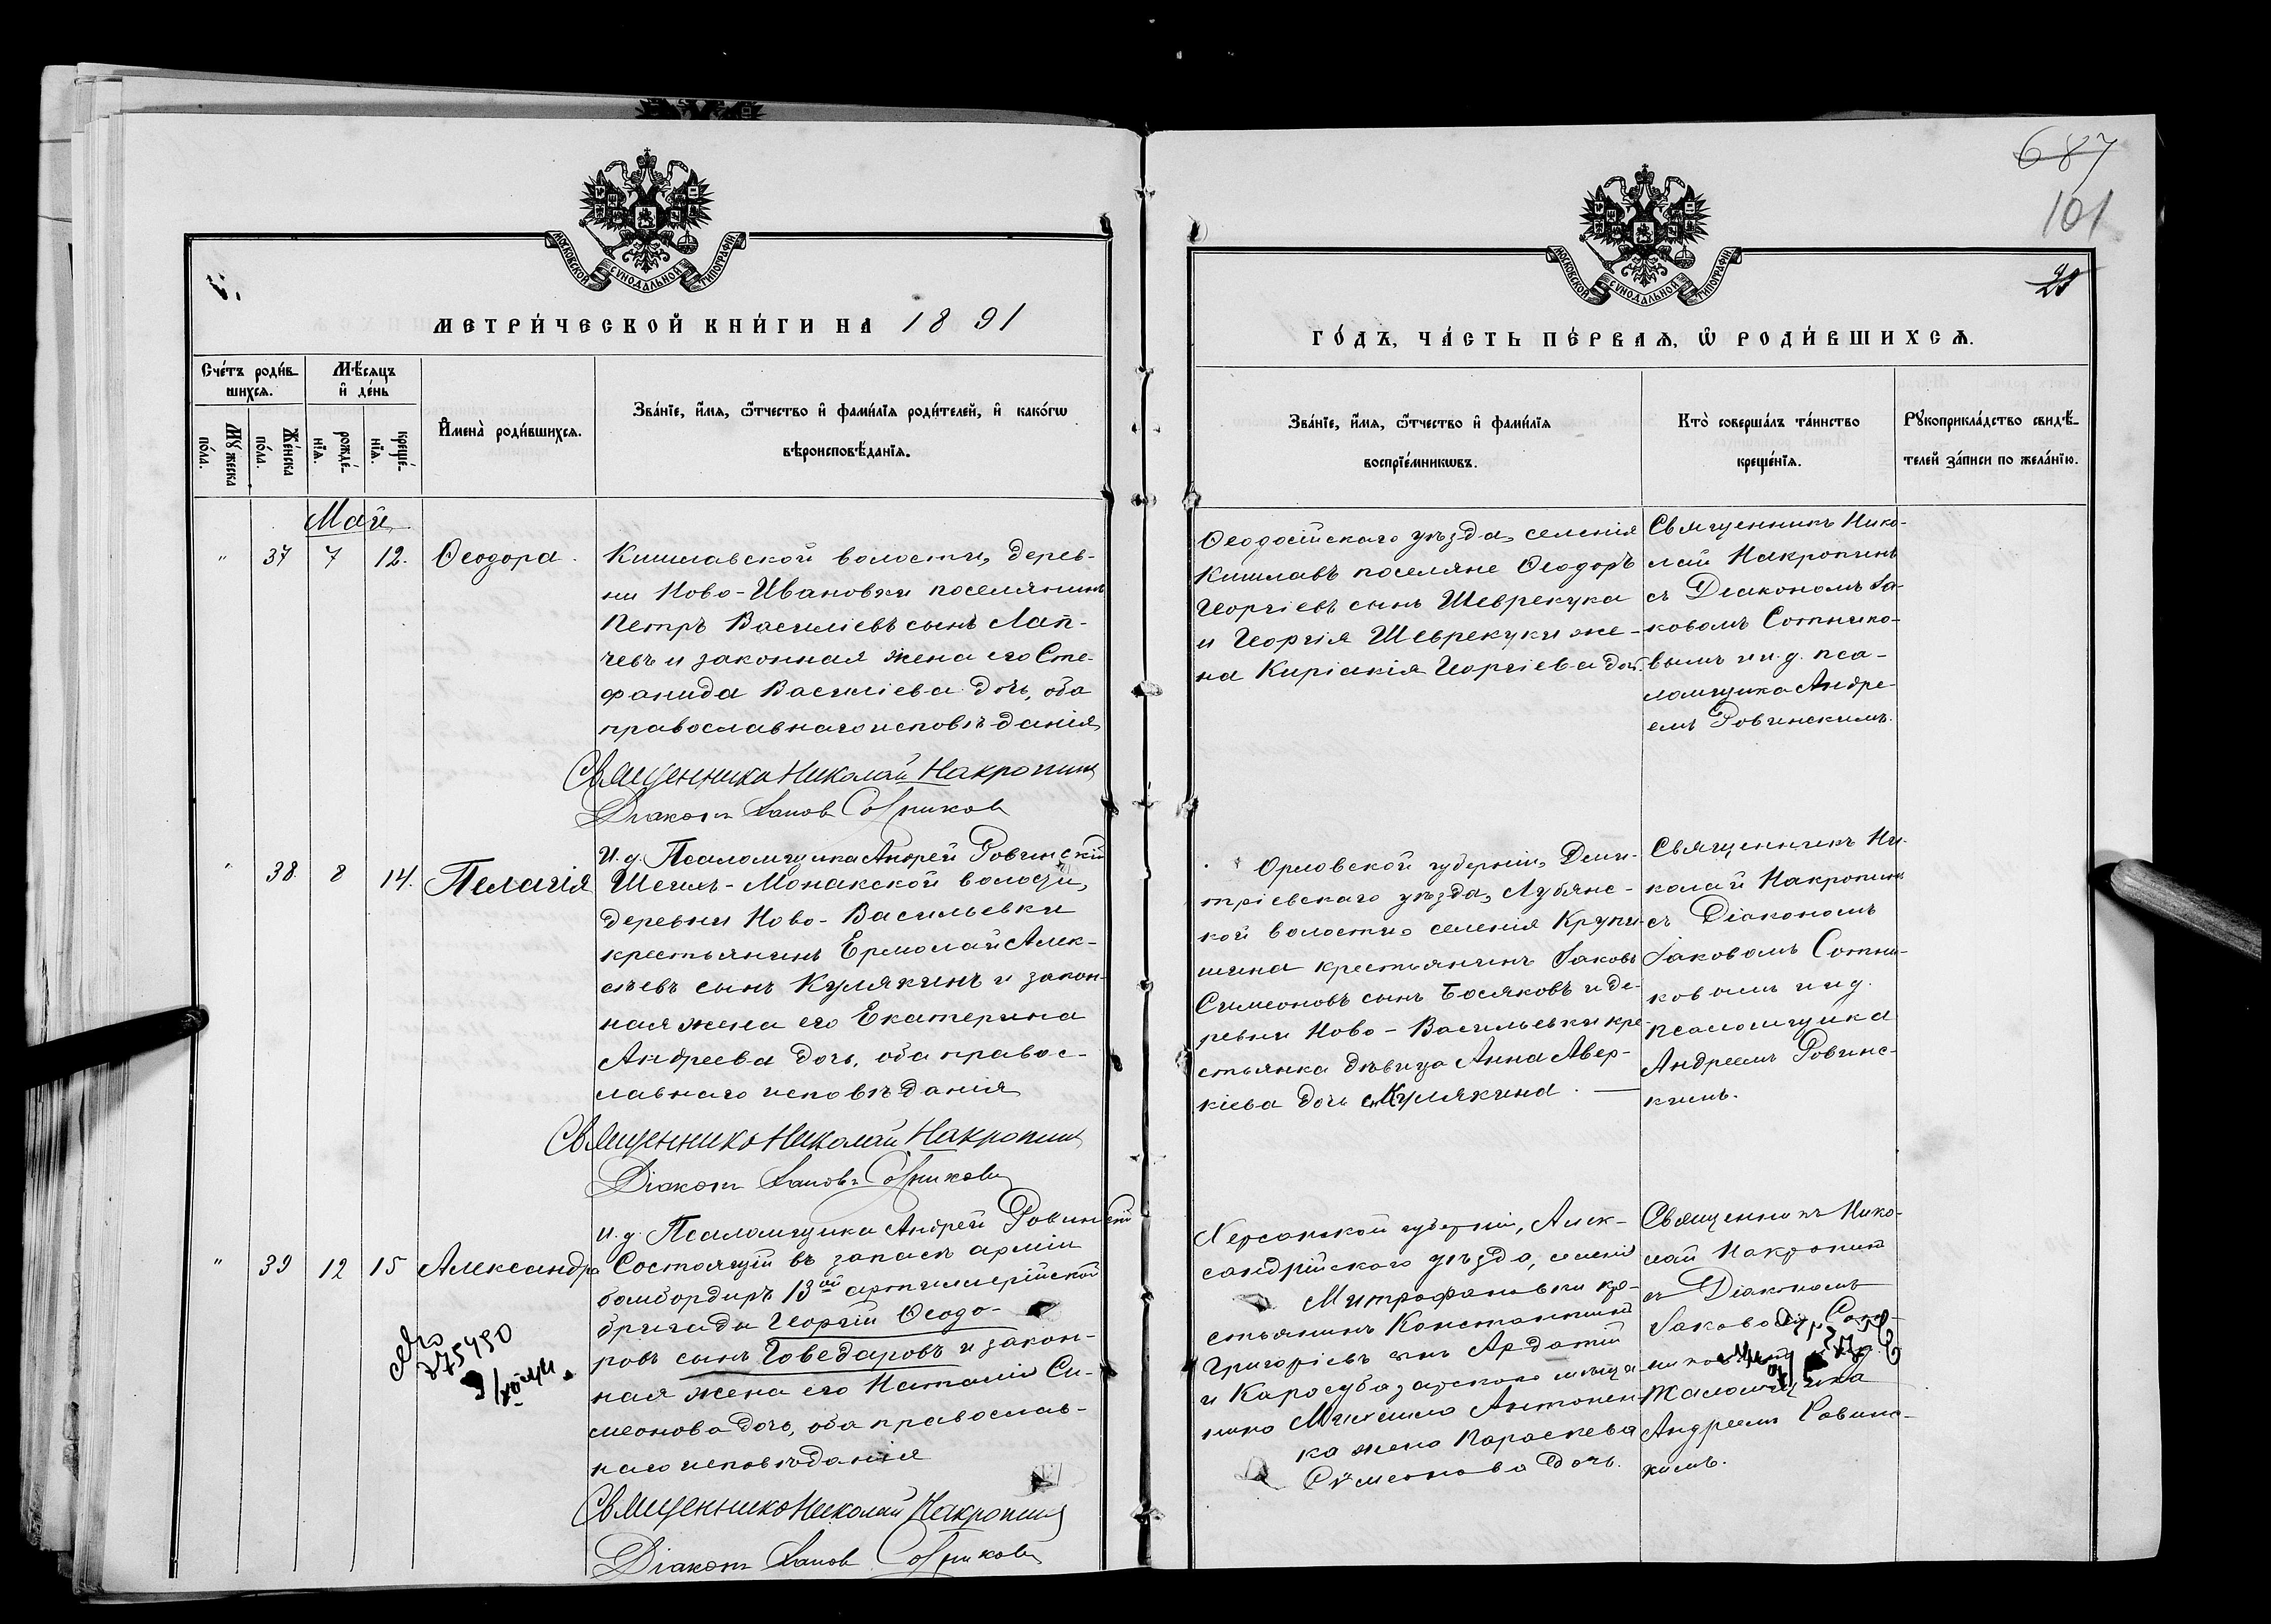 687
101
МОСКОВСКОЙ СѴНОДАЛЬНОЙ ТИПОГРАФІИ
МЕТРИ́ЧЕСКОЙ КНИ́ГИ НА 1891
Сче́тъ роди́вшихся.
Мѣ́сяцъ и҆ де́нь
Му́жеска по́ла.
Же́нска по́ла.
рожде́нїѧ.
креще́нїѧ.
И҆мена̀ роди́вшихсѧ.
Зва́нїе, и҆́мѧ, ѻ҆́тчество и҆ фами́лїѧ роди́телей, и҆ како́гѡ
вѣроисповѣ́данїѧ.
Май
" 37 7 12. Ѳеодора.
Кишлавской волости, дерев-
ни Ново-Ивановки поселянинъ
Петръ Василіевъ сынъ Лап-
чевъ и законная жена его Сте-
фанида Василіева дочь, оба
православнаго исповѣданія
Священникъ Николай Накропинъ
Діаконъ Іаковъ Сотниковъ
И. д. Псаломщика Андрей Ровинскій
" 38 8 14. Пелагія
Шейхъ-Монакской волости,
деревни Ново-Васильевки
крестьянинъ Ермолай Алек-
сѣевъ сынъ Кулякинъ и закон-
ная жена его Екатерина
Андреева дочь, оба правос-
лавнаго исповѣданія
Священникъ Николай Накропинъ
Діаконъ Іаковъ Сотниковъ
И. д. Псаломщика Андрей Ровинскій
" 39 12 15 Александра
Состоящій въ запасѣ арміи
бомбордиръ 13ой артиллерійской
бригады Георгій Ѳеодо-
ровъ сынъ Говедаровъ и закон-
ная жена его Наталія Си-
меонова дочь, оба православ-
наго исповѣданія
№ 275490
Священникъ Николай Накропинъ
Діаконъ Іаковъ Сотниковъ
МОСКОВСКОЙ СѴНОДАЛЬНОЙ ТИПОГРАФІИ
ГО́ДЪ, ЧА́СТЬ ПЕ́РВАѦ, Ѡ҆ РОДИ́ВШИХСѦ.
Зва́нїе, и҆́мѧ, ѻ҆́тчество и҆ фами́лїѧ
воспрїе́мникѡвъ.
Кто̀ соверша́лъ та́инство
креще́нїѧ.
Рꙋкоприкла́дство свидѣ́-
телей за́писи по жела́нїю.
Ѳеодосійскаго уѣзда, селенія
Кишлавъ поселяне Ѳеодоръ
Георгіевъ сынъ Шеврекука
и Георгія Шеврекуки же-
на Киріакія Георгіева доч.
Священникъ Нико-
лай Накропинъ
съ Діакономъ Іа-
ковомъ Сотнико-
вымъ и и. д. пса-
ломщика Андре-
емъ Ровинскимъ.
Орловской губерніи, Дми-
тріевскаго уѣзда, Лубянс-
кой волости селенія Крупы-
шина крестьянинъ Іаковъ
Симеоновъ сынъ Босяковъ и де-
ревни Ново-Васильевки кре-
стьянка дѣвица Анна Авер-
кіева дочь Кулякина.
Священникъ Ни-
колай Накропинъ
съ Діакономъ
Іаковомъ Сотни-
ковымъ и и д.
псаломщика
Андреемъ Ровинс-
кимъ.
Херсонской губерніи, Алек-
сандрійскаго уѣзда, селенія
Митрофановки кре-
стьянинъ Константинъ
Григоріевъ сынъ
и Карасубазарскаго мѣща-
нина Михаила Антонен-
ка жена Параскева
Сѵмеонова дочь.
Священникъ Нико-
лай Накропинъ
съ Діакономъ
Іаковомъ Сотни-
ковымъ и и. д.
Псаломщика
Андреемъ Ровинс-
кимъ.